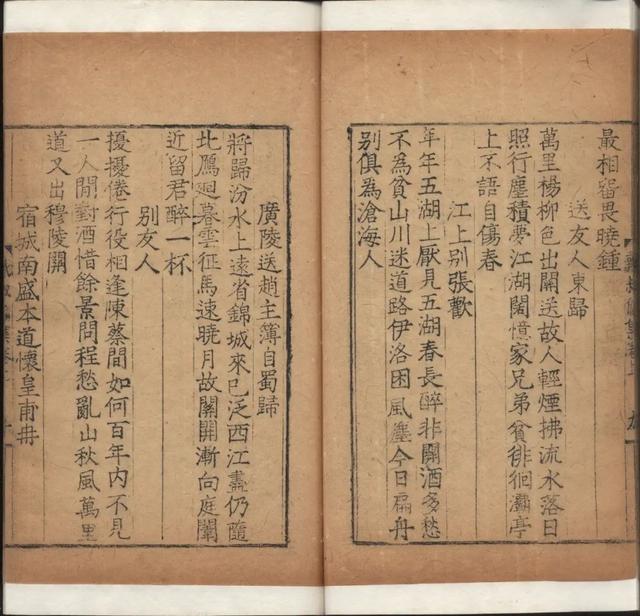 最相留畏曉鍾
送友人東歸
萬里楊柳色出關送故人輕煙拂流水落日
照行塵積夢江湖闊憶家兄弟貧徘徊灞亭
上不語自傷春
江上別張歡
年年五湖上厭見五湖春長醉非關酒多愁
不為貧山川迷道路伊洛困風塵今日扁舟
別俱為滄海人
廣陵送趙主簿自蜀歸
將歸汾水上遠省錦城來已泛西江盡仍隨
北鴈迴暮雲征馬速曉月故關開漸向庭闈
近留君醉一杯
別友人
擾擾倦行役相逢陳蔡間如何百年內不見
一人閒對酒惜餘景問程愁亂山秋風萬里
道又出穆陵關
宿城南盛本道懷皇甫冉